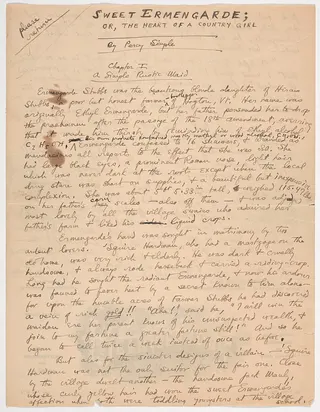 please
return
SWEET ERMENGARDE;
OR, THE HEART OF A COUNTRY GIRL
By Percy Simple
Chapter I.
A Simple Rustic Maid
Ermengarde Stubbs was the beauteous blonde daughter of Hiram
Stubbs, a poor but honest farmer-bootlegger of Hogton, Vt. Her name was
originally Ethyl Ermengarde, but her father persuaded her to drop
the praenomen after the passage of the 18th Amendment, averring
that it made him thirsty by reminding him of ethyl alcohol,
C2H5OH. His own products contained mostly methyl or wood alcohol, CH3OH.
Ermengarde confessed to 16 summers, and branded as
mendacious all reports to the effect that she was 30. She
had large black eyes, a prominent Roman nose, light hair
which was never dark at the roots except when the local
drug store was short on supplies, and a beautiful but inexpensive
complexion. She was about 5ft 5.33 tall, weighed 115.47 lbs
on her father's corn scales - also off them - & was adjudged
most lovely by all the village swains who admired her
father's farm & liked his liquid crops.
Ermengarde's hand was sought in matrimony by two
ardent lovers. 'Squire Hardman, who had a mortgage on the
old home, was very rich & elderly. He was dark & cruelly
handsome, & always rode horseback & carried a riding-crop.
Long had he sought the radiant Ermengarde, & now his ardour
was fanned to fever heat by a secret known to him alone -
for upon the humble acres of Farmer Stubbs he had discovered
a vein of rich GOLD!! "Aha!" said he, "I will win the
maiden ere her parent knows of his unsuspected wealth, &
join to my fortune a greater fortune still!" And so he
began to call twice a week instead of once as before.
But alas for the sinister designs of a villain - 'Squire
Hardman was not the only suitor for the fair one. Close
by the village dwelt another - the handsome Jack Manly,
whose curly yellow hair had won the sweet Ermengarde's
affection when both were toddling youngsters at the village
school.